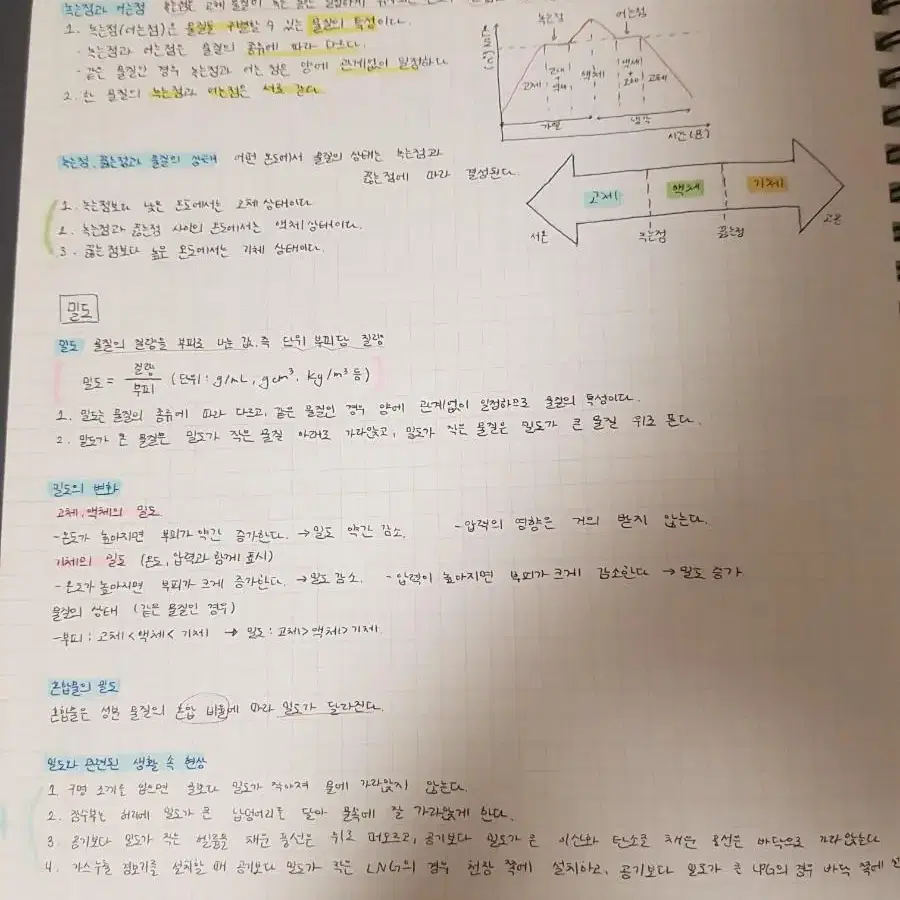 녹는점과 어는점
1. 녹는점(어는점)은 물질을 구별할 수 있는 물질의 특성이다.
· 녹는점과 어는점은 물질의 종류에 따라 다르다.
· 같은 물질인 경우 녹는점과 어는 점은 양에 관계없이 일정하다
2. 한 물질의 녹는점과 어는점은 서로 같다.
녹는점 어는점
온도(℃)
고체 고체+액체 액체 액체+고체 고체
가열 냉각
시간(분)
녹는점, 끓는점과 물질의 상태 어떤 온도에서 물질의 상태는 녹는점과
끓는점에 따라 결정된다.
1. 녹는점보다 낮은 온도에서는 고체 상태이다
2. 녹는점과 끓는점 사이의 온도에서는 액체 상태이다.
3. 끓는점보다 높은 온도에서는 기체 상태이다.
고체 액체 기체
저온 녹는점 끓는점 고온
밀도
밀도 물질의 질량을 부피로 나눈 값, 즉 단위 부피당 질량
밀도 = 질량/부피 (단위: g/mL, g/cm³, kg/m³ 등)
1. 밀도는 물질의 종류에 따라 다르고, 같은 물질인 경우 양에 관계없이 일정하므로 물질의 특성이다.
2. 밀도가 큰 물질은 밀도가 작은 물질 아래로 가라앉고, 밀도가 작은 물질은 밀도가 큰 물질 위로 뜬다.
밀도의 변화
고체, 액체의 밀도
-온도가 높아지면 부피가 약간 증가한다. →밀도 약간 감소. -압력의 영향은 거의 받지 않는다.
기체의 밀도 (온도, 압력과 함께 표시)
-온도가 높아지면 부피가 크게 증가한다. →밀도 감소. -압력이 높아지면 부피가 크게 감소한다 →밀도 증가
물질의 상태 (같은 물질인 경우)
-부피: 고체<액체<기체 → 밀도: 고체>액체>기체
혼합물의 밀도
혼합물은 성분 물질의 혼합 비율에 따라 밀도가 달라진다.
밀도와 관련된 생활 속 현상
1. 구명 조끼를 입으면 물보다 밀도가 작아져 물에 가라앉지 않는다.
2. 잠수부는 허리에 밀도가 큰 납덩어리를 달아 물속에 잘 가라앉게 한다.
3. 공기보다 밀도가 작은 헬륨을 채운 풍선은 위로 떠오르고, 공기보다 밀도가 큰 이산화 탄소를 채운 풍선은 바닥으로 가라앉는다
4. 가스 누출 경보기를 설치할 때 공기보다 밀도가 작은 LNG의 경우 천장 쪽에 설치하고, 공기보다 밀도가 큰 LPG의 경우 바닥 쪽에